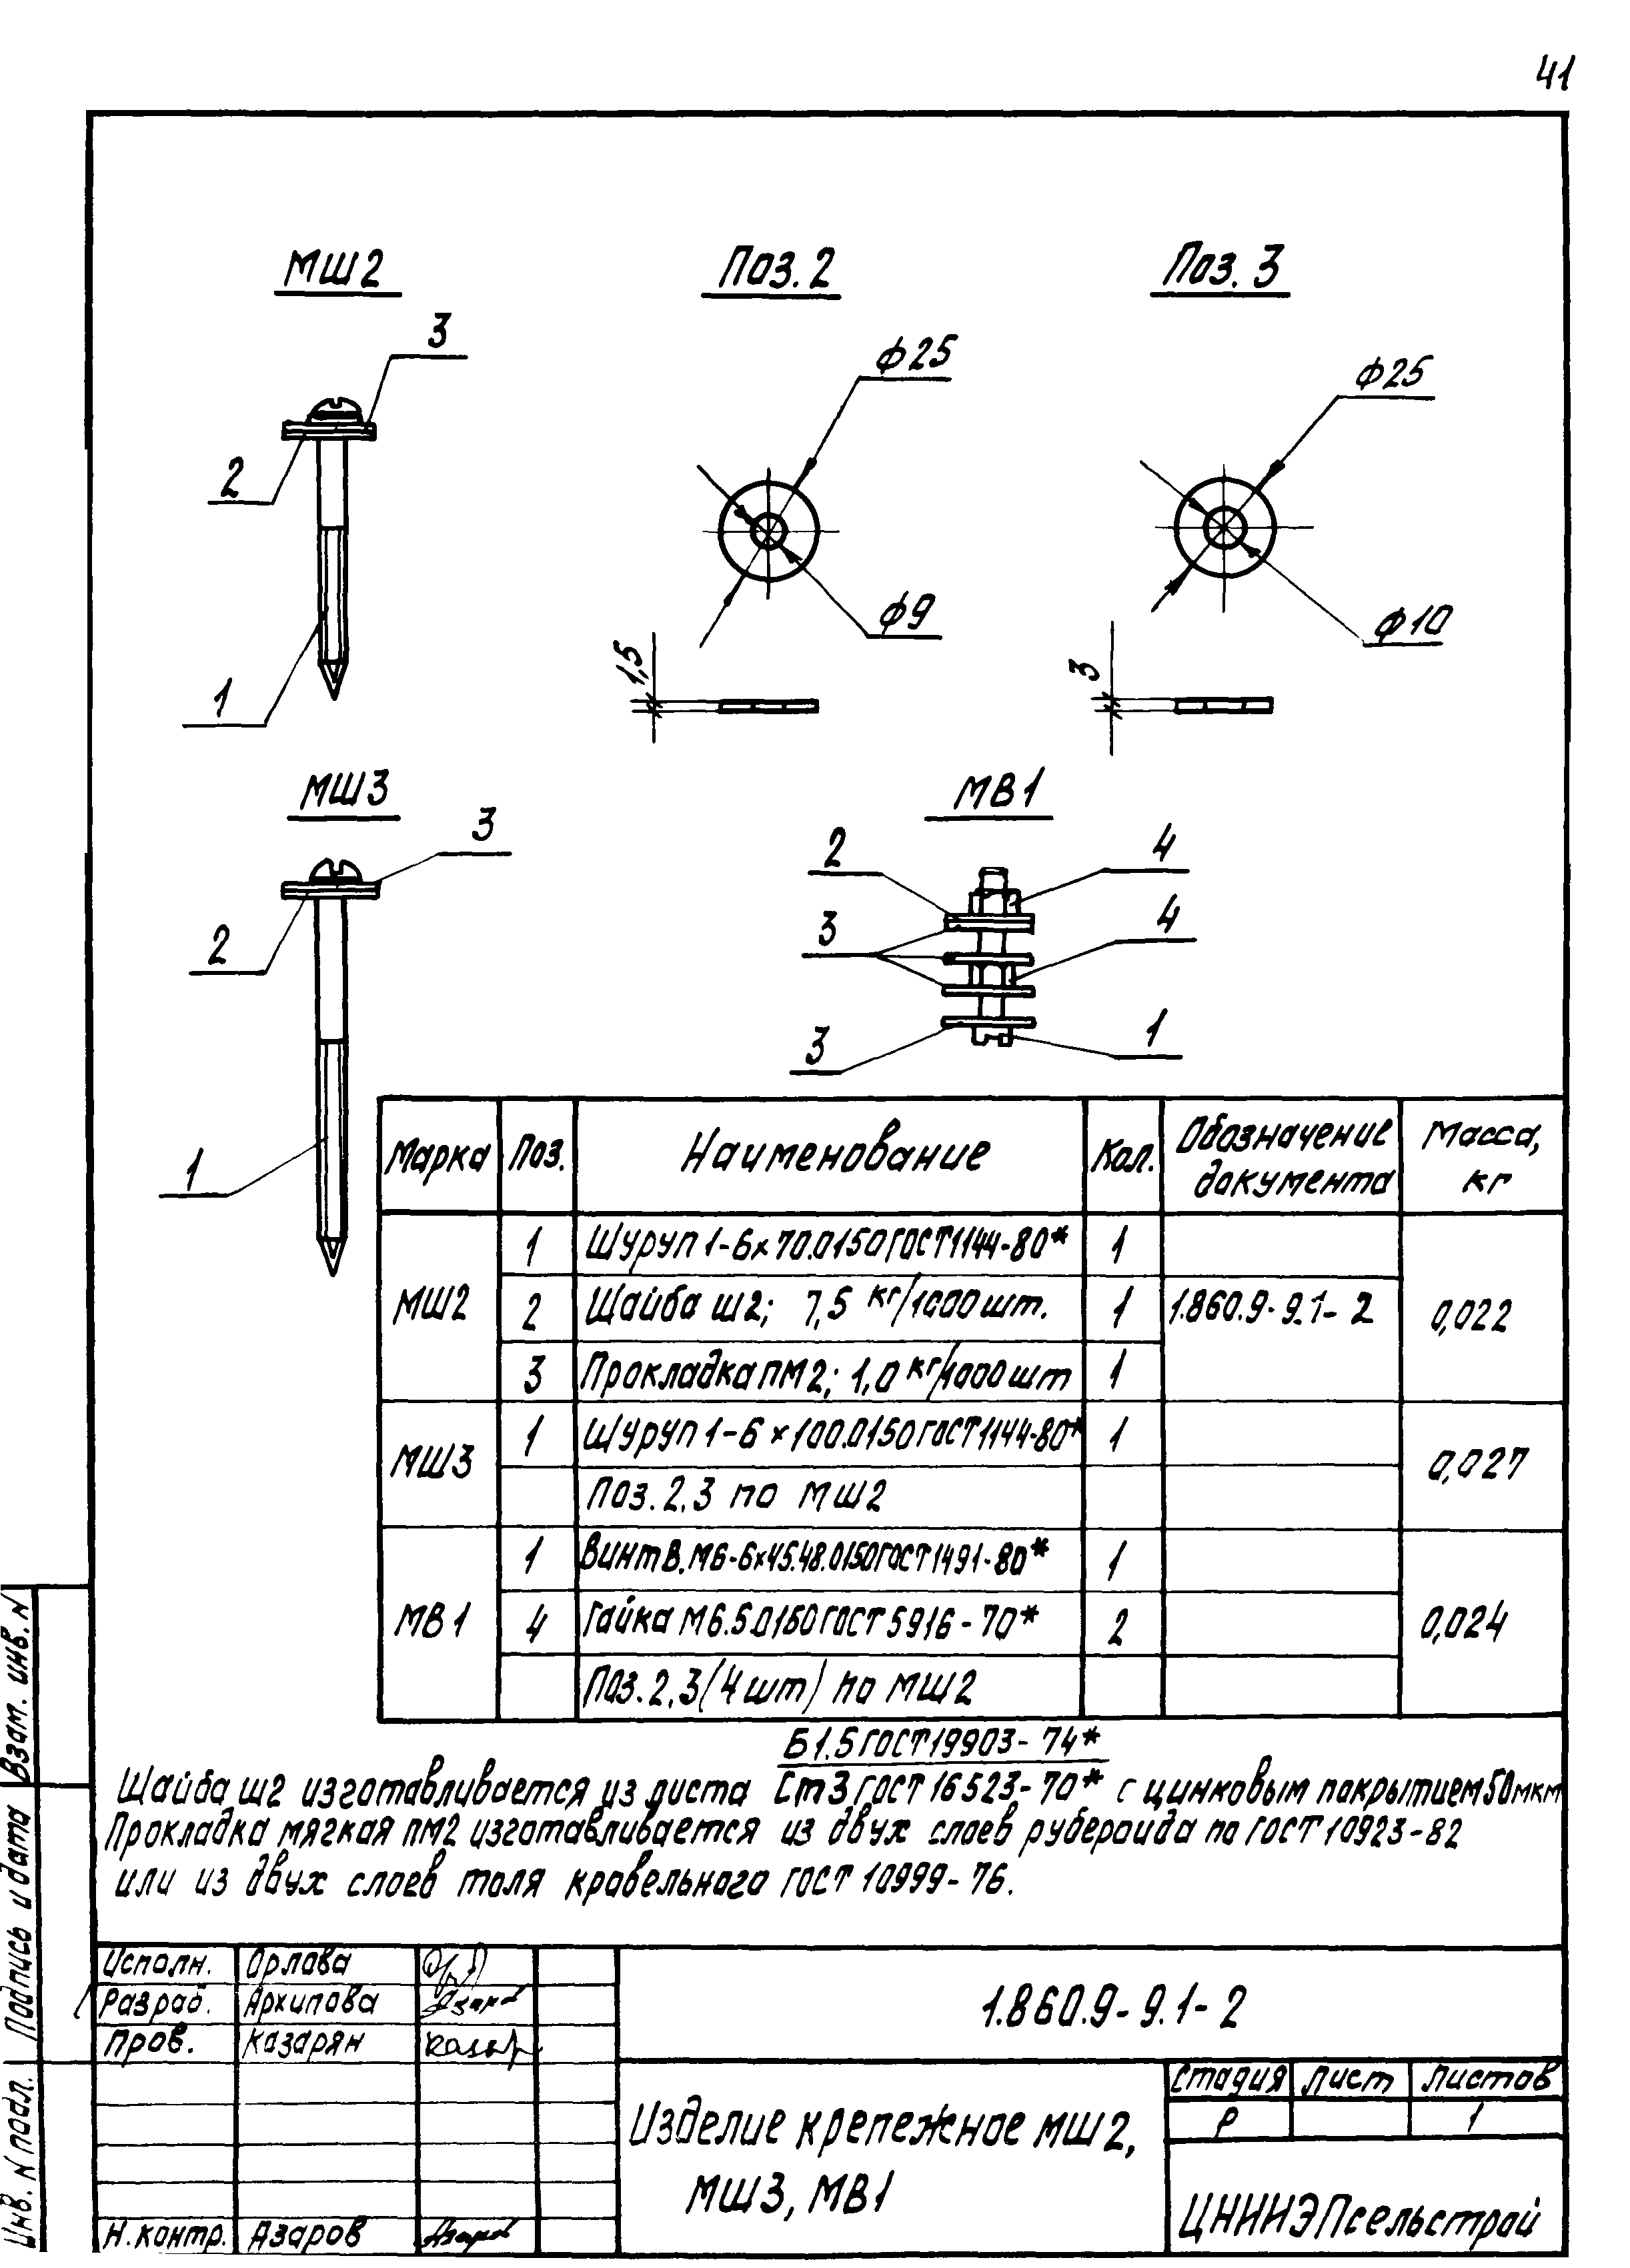 41
МШ2
Поз. 2
Поз. 3
3
2
1
ф25
ф9
1,5
ф25
ф10
3
МШ3
3
2
1
МВ1
2
4
3
4
3
1
Марка Поз. Наименование Кол. Обозначение документа Масса, кг
МШ2 0,022
1 Шуруп 1-6×70.0150 ГОСТ 1144-80* 1
2 Шайба Ш2; 7,5 кг/1000 шт. 1 1.860.9-9.1-2
3 Прокладка ПМ2; 1,0 кг/1000 шт 1
МШ3 0,027
1 Шуруп 1-6×100.0150 ГОСТ 1144-80* 1
Поз. 2,3 по МШ2
МВ1 0,024
1 Винт В.М6-6×45.48.0150 ГОСТ 1491-80* 1
4 Гайка М6.5.0150 ГОСТ 5916-70* 2
Поз. 2,3 (4 шт) по МШ2
Б1.5 ГОСТ 19903-74*
Шайба Ш2 изготавливается из листа Ст3 ГОСТ 16523-70* с цинковым покрытием 50 мкм
Прокладка мягкая ПМ2 изготавливается из двух слоев рубероида по ГОСТ 10923-82
или из двух слоев толя кровельного ГОСТ 10999-76.
Исполн. Орлова
Разраб. Архипова
Пров. Казарян
Н.контр. Азаров
1.860.9-9.1-2
Изделие крепежное МШ2,
МШ3, МВ1
Стадия Лист Листов
Р 1
ЦНИИЭПсельстрой
Инв. N подл.
Подпись и дата
Взам. инв. N